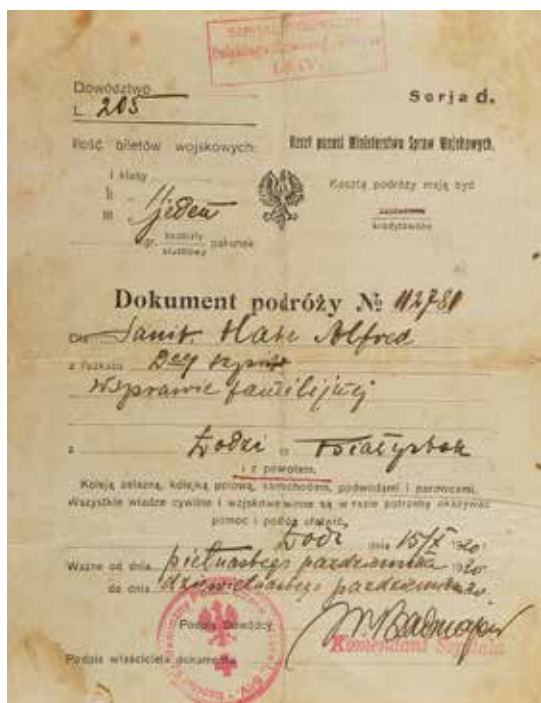 Dowództwo
L. 205
Serja d.
Ilość biletów wojskowych:
Koszt ponosi Ministerstwo Spraw Wojskowych.
I klasy
II "
III " jeden
Koszta podróży mają być
kredytowane
gr. osobisty służbowy pakunek
Dokument podróży № 112781
Dla Sanit. Alfred
z rozkazu
W sprawie familijnej
z Łodzi do Białystok
i z powrotem.
Koleją żelazną, kolejką polową, samochodem, podwodami i parowcami.
Wszystkie władze cywilne i wojskowe winne są w razie potrzeby okazywać
pomoc i podróż ułatwić.
Łódź dnia 15/X 1920
Ważne od dnia piętnastego października 1920
do dnia dziewiętnastego października
Podpis Dowódcy
Komendant Szpitala
Podpis właściciela dokumentu